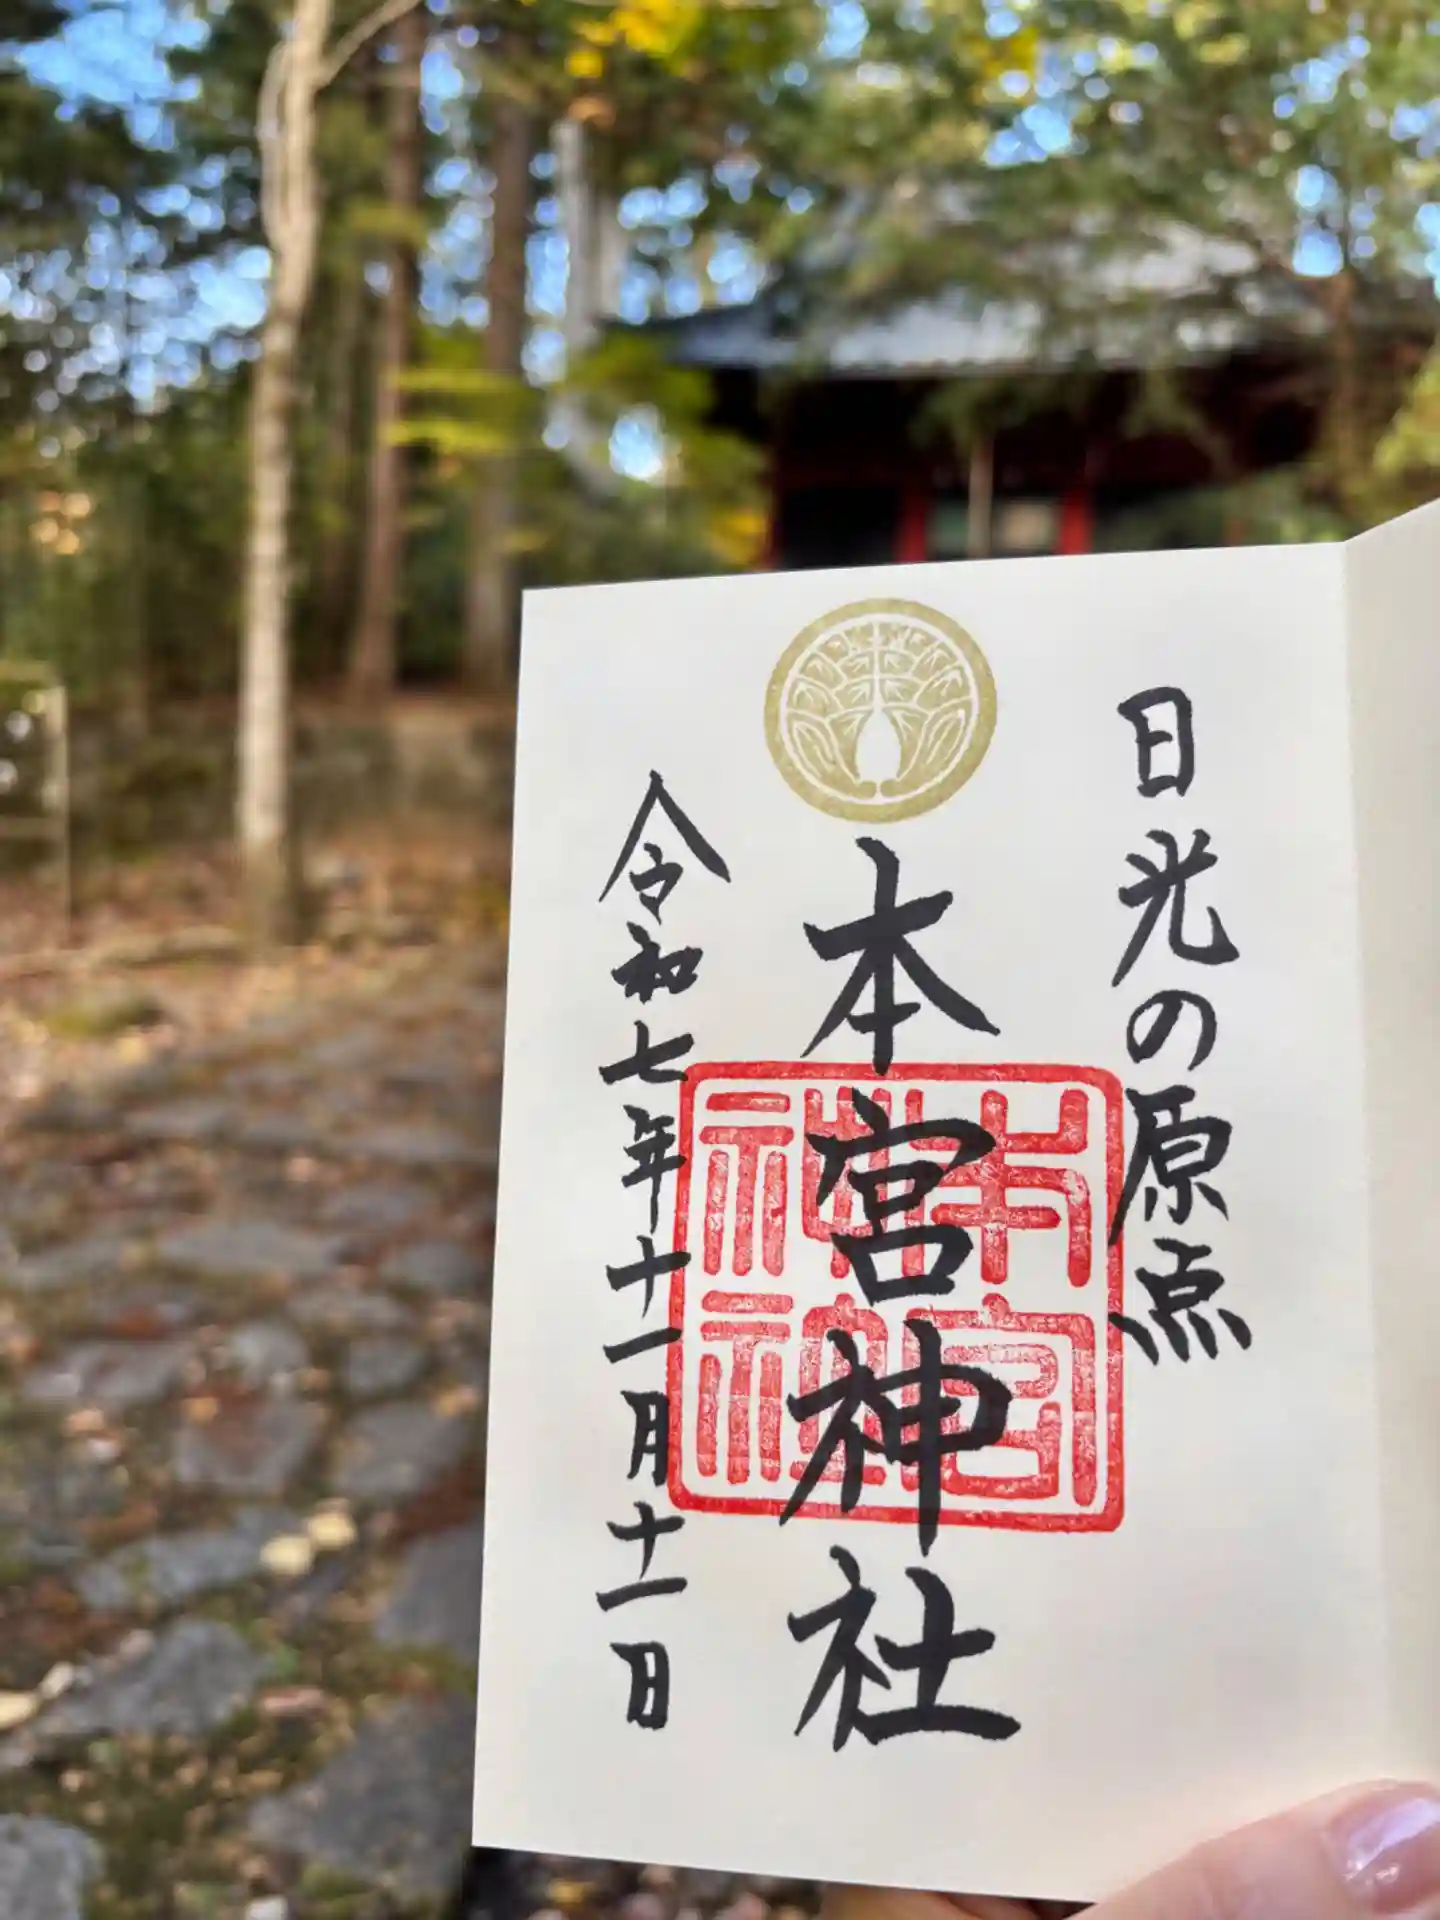 日光の原点
本宮神社
令和七年十一月十一日
本宮
神社